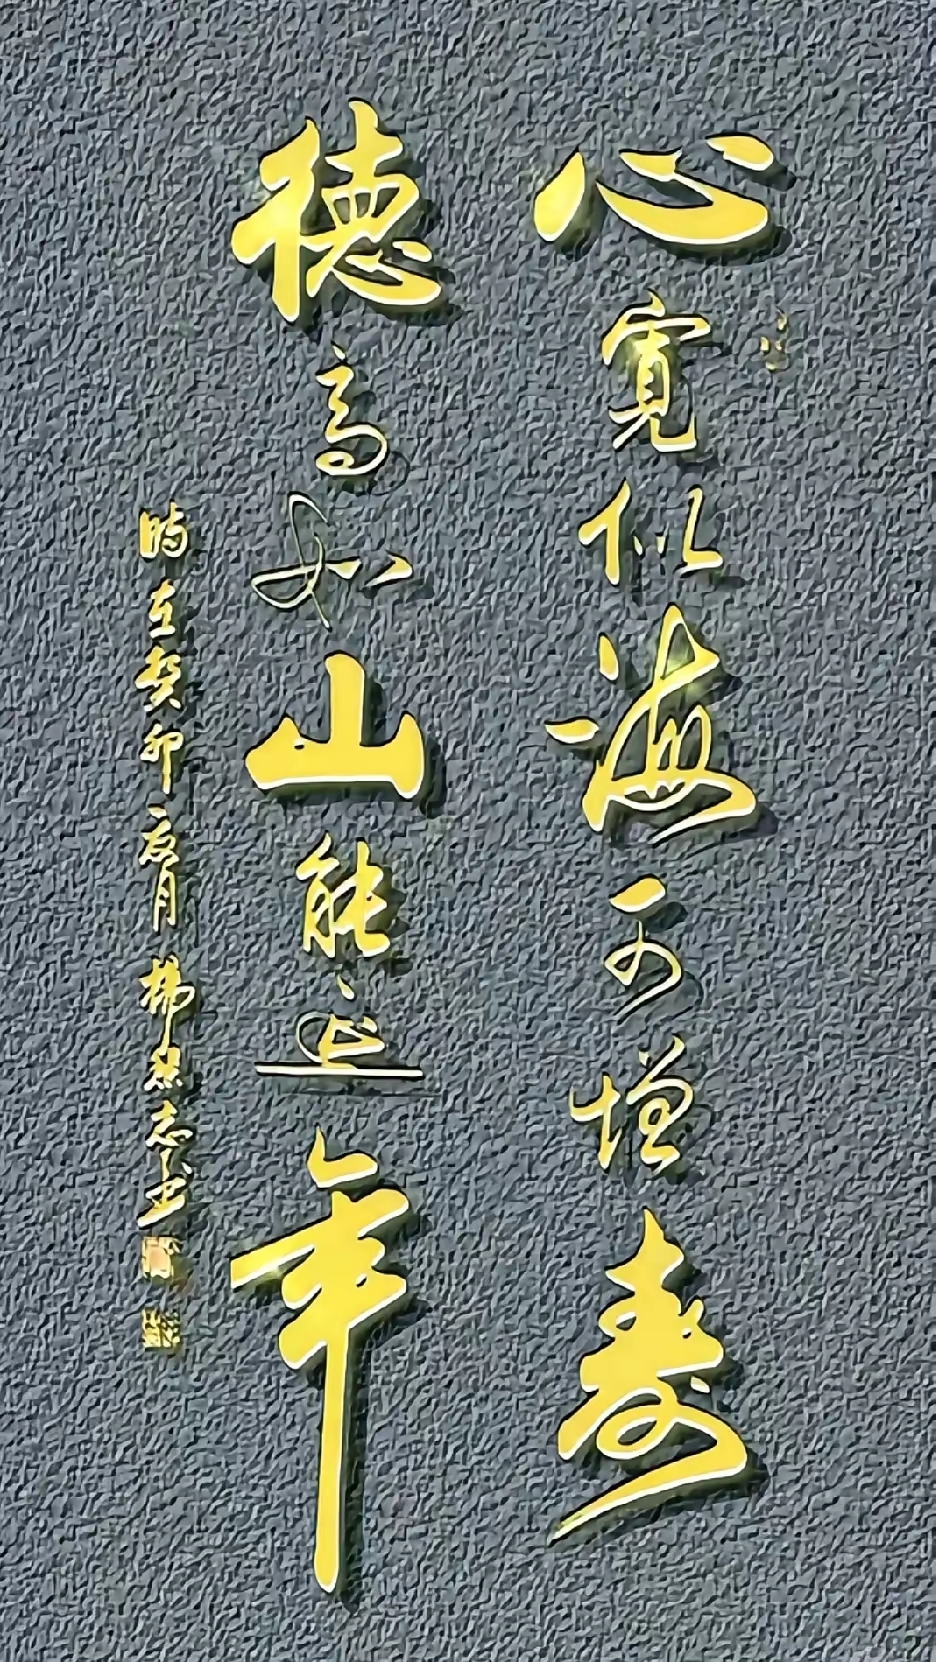 心寬似海可增壽
德高如山能延年
時在癸卯 月 楊 志書